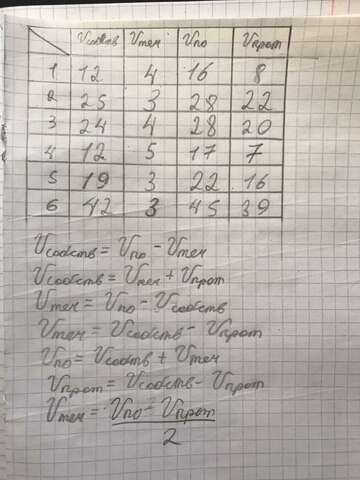 Vсобств Vтеч Vпо Vпрот
1 12 4 16 8
2 25 3 28 22
3 24 4 28 20
4 12 5 17 7
5 19 3 22 16
6 42 3 45 39
Vсобств = Vпо - Vтеч
Vсобств = Vтеч + Vпрот
Vтеч = Vпо - Vсобств
Vтеч = Vсобств - Vпрот
Vпо = Vсобств + Vтеч
Vпрот = Vсобств - Vпрот
Vтеч = Vпо - Vпрот
2